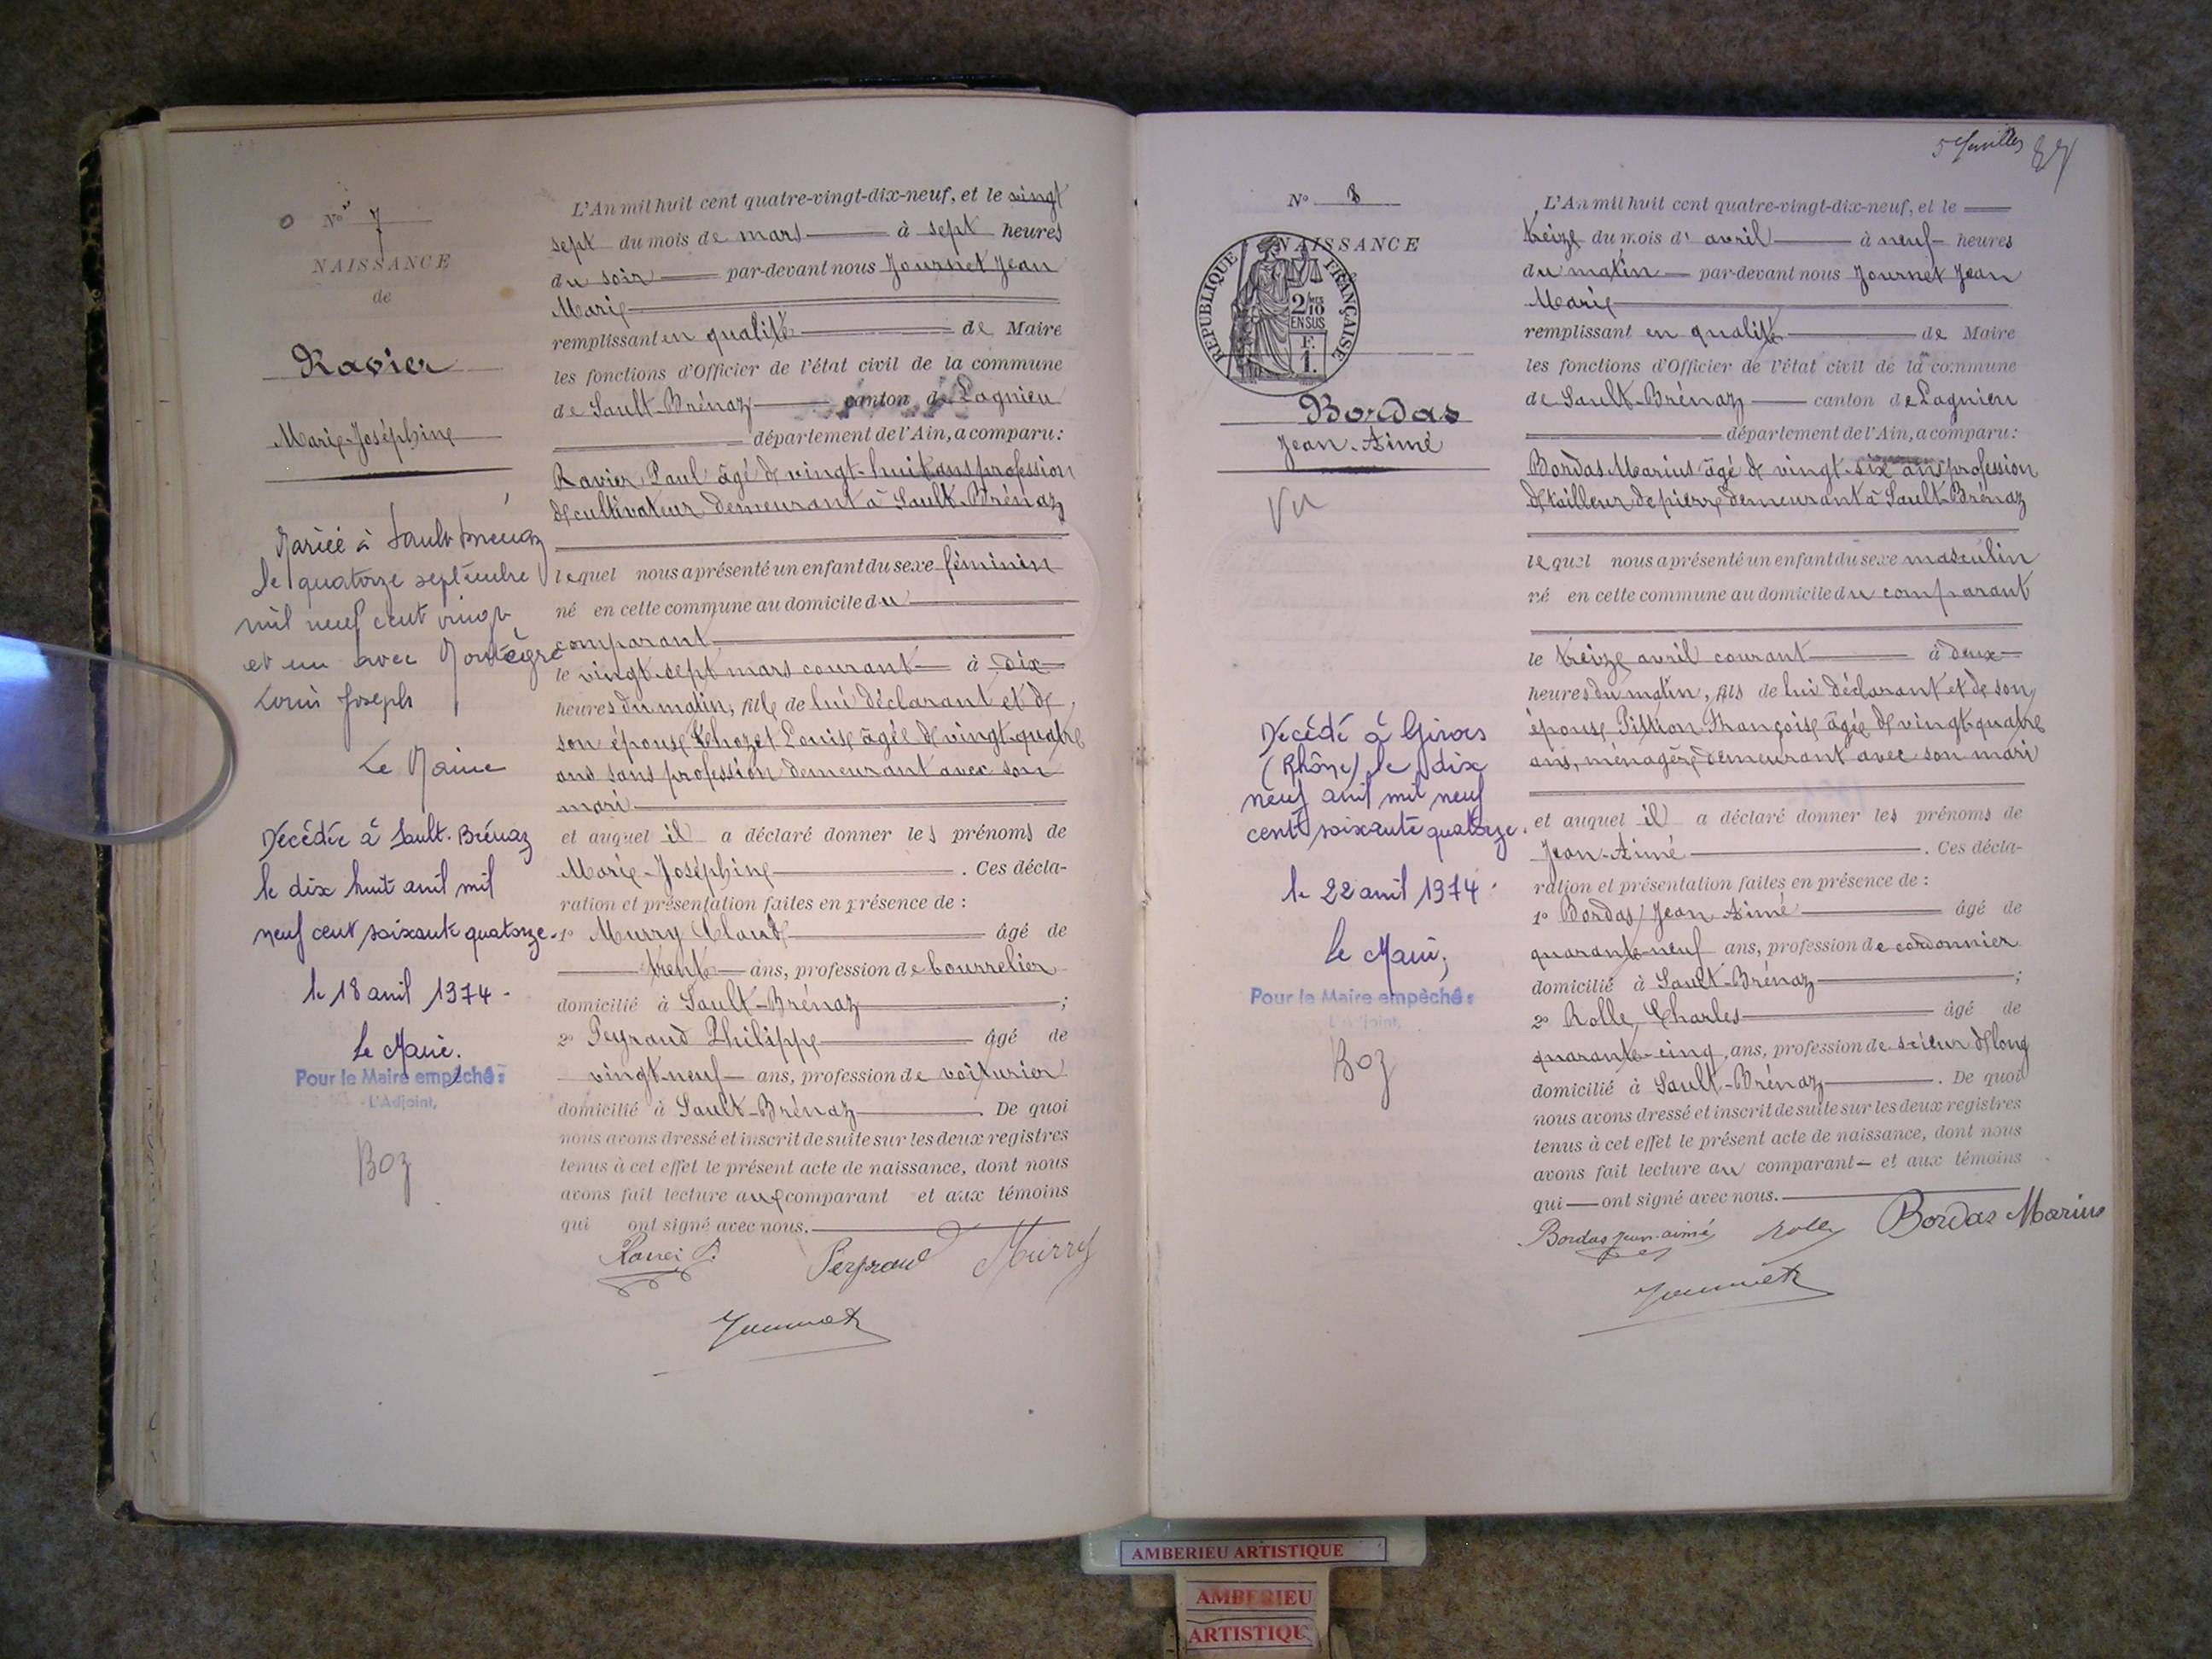 N° 7
NAISSANCE
de
Ravier
Marie-Joséphine
Mariée à Sault Brénaz
le quatorze septembre
mil neuf cent vingt
et un avec
Louis Joseph
Le Maire
Décédée à Sault-Brénaz
le dix huit avril mil
neuf cent soixante quatorze.
le 18 avril 1974.
Le Maire.
Pour le Maire empêché :
L'Adjoint,
Boz
L'An mil huit cent quatre-vingt-dix-neuf, et le vingt
sept du mois de mars à sept heures
du soir par-devant nous Journet Jean
Marie
remplissant en qualité de Maire
les fonctions d'Officier de l'état civil de la commune
de Sault-Brénaz canton de Lagnieu
département de l'Ain, a comparu :
Ravier Paul âgé de vingt-huit ans profession
de cultivateur demeurant à Sault-Brénaz
lequel nous a présenté un enfant du sexe féminin
né en cette commune au domicile du
comparant
le vingt-sept mars courant à dix
heures du matin, fille de lui déclarant et de
son épouse Chozet Louise âgée de vingt-quatre
ans sans profession demeurant avec son
mari
et auquel il a déclaré donner les prénoms de
Marie-Joséphine . Ces décla-
ration et présentation faites en présence de :
1° Murry Claude âgé de
trente ans, profession de bourrelier
domicilié à Sault-Brénaz ;
2° Peyraud Philippe âgé de
vingt-neuf ans, profession de voiturier
domicilié à Sault-Brénaz . De quoi
nous avons dressé et inscrit de suite sur les deux registres
tenus à cet effet le présent acte de naissance, dont nous
avons fait lecture aux comparant et aux témoins
qui ont signé avec nous.
Ravier P. Peyraud Murry
Journet
5e feuillet
N° 8
NAISSANCE
RÉPUBLIQUE FRANÇAISE
2/10
EN SUS
F.
1.
Bordas
Jean-Aimé
Vu
Décédé à Givors
(Rhône) le dix
neuf avril mil neuf
cent soixante quatorze.
le 22 avril 1974.
Le Maire,
Pour le Maire empêché :
L'Adjoint,
Boz
L'An mil huit cent quatre-vingt-dix-neuf, et le
treize du mois d'avril à neuf heures
du matin par-devant nous Journet Jean
Marie
remplissant en qualité de Maire
les fonctions d'Officier de l'état civil de la commune
de Sault-Brénaz canton de Lagnieu
département de l'Ain, a comparu :
Bordas Marius âgé de vingt-six ans profession
de tailleur de pierre demeurant à Sault-Brénaz
lequel nous a présenté un enfant du sexe masculin
né en cette commune au domicile du comparant
le treize avril courant à deux
heures du matin, fils de lui déclarant et de son
épouse Pittion Françoise âgée de vingt-quatre
ans, ménagère demeurant avec son mari
et auquel il a déclaré donner les prénoms de
Jean-Aimé . Ces décla-
ration et présentation faites en présence de :
1° Bordas Jean Aimé âgé de
quarante-neuf ans, profession de cordonnier
domicilié à Sault-Brénaz ;
2° Rolle Charles âgé de
quarante-cinq ans, profession de scieur de long
domicilié à Sault-Brénaz . De quoi
nous avons dressé et inscrit de suite sur les deux registres
tenus à cet effet le présent acte de naissance, dont nous
avons fait lecture au comparant et aux témoins
qui ont signé avec nous.
Bordas Jean aimé Rolle Bordas Marius
Journet
AMBERIEU ARTISTIQUE
AMBERIEU
ARTISTIQU